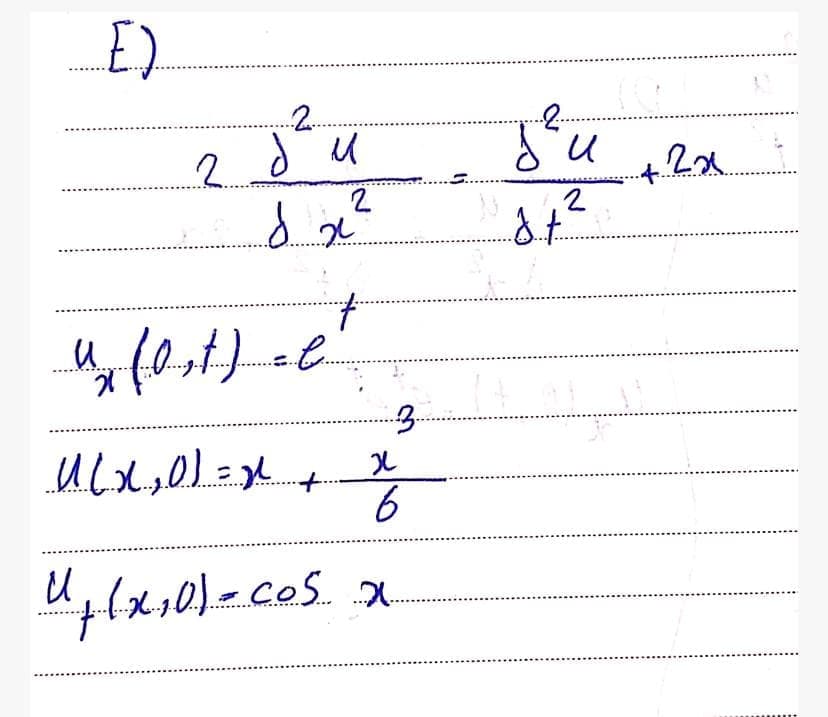 E)
2 ∂²u/∂x² = ∂²u/∂t² + 2x
uₓ(0,t) = eᵗ
u(x,0) = x + x³/6
uₜ(x,0) = cos x